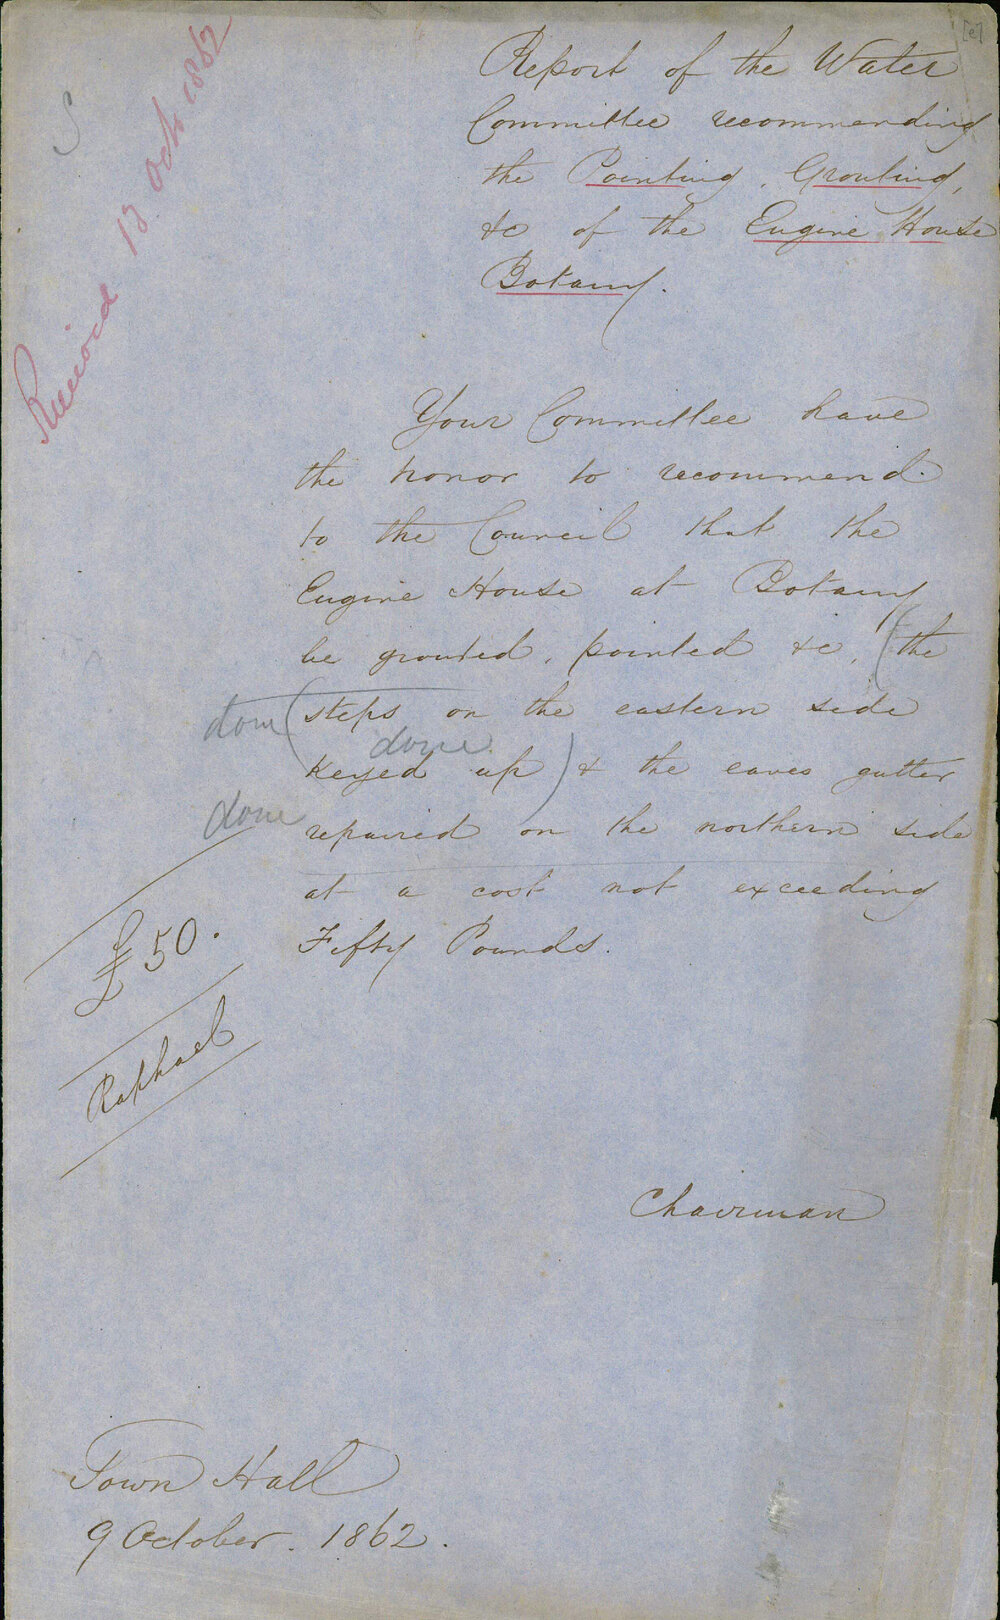 [e]
S
Received 13 Oct. 1862
Report of the Water
Committee recommending
the Pointing, Grouting,
&c of the Engine House
Botany.
Your Committee have
the honor to recommend
to the Council that the
Engine House at Botany
be grouted, pointed &c, (the
done (steps on the eastern side
done
keyed up) & the eaves gutter
done
repaired on the northern side
at a cost not exceeding
Fifty Pounds.
£50.
Raphael
Chairman
Town Hall
9 October. 1862.